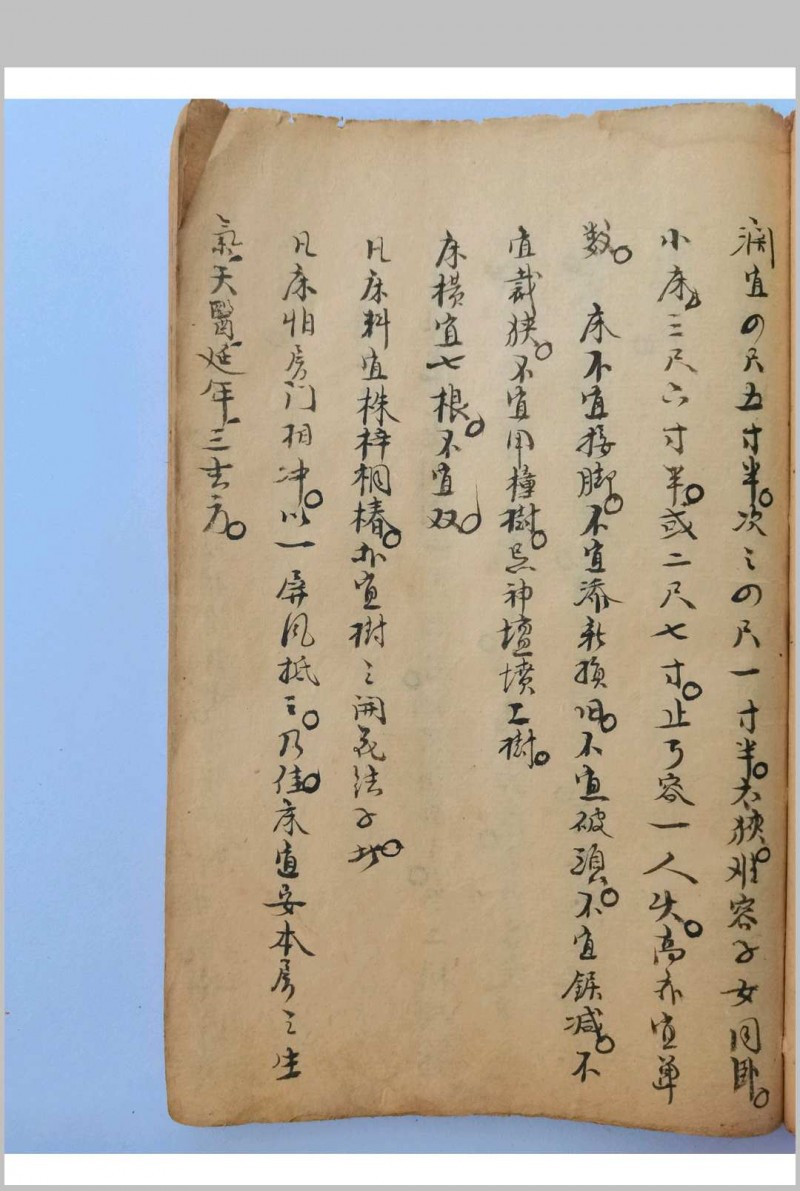 濶宜〇尺五寸半。次之〇尺一寸半。太狭难容子女同卧。
小床三尺六寸半。或二尺七寸。止可容一人矣。高亦宜单
数。床不宜接脚。不宜添新换旧。不宜破頭。不宜鋸减。不
宜裁狭。不宜用樟樹。忌神壇墳上樹。
床横宜七根。不宜双。
凡床料宜株梓桐椿。亦宜樹之開花结子者。
凡床怕房门相冲。以一屏风抵之。乃佳。床宜安本房之生
氣天醫延年三吉方。